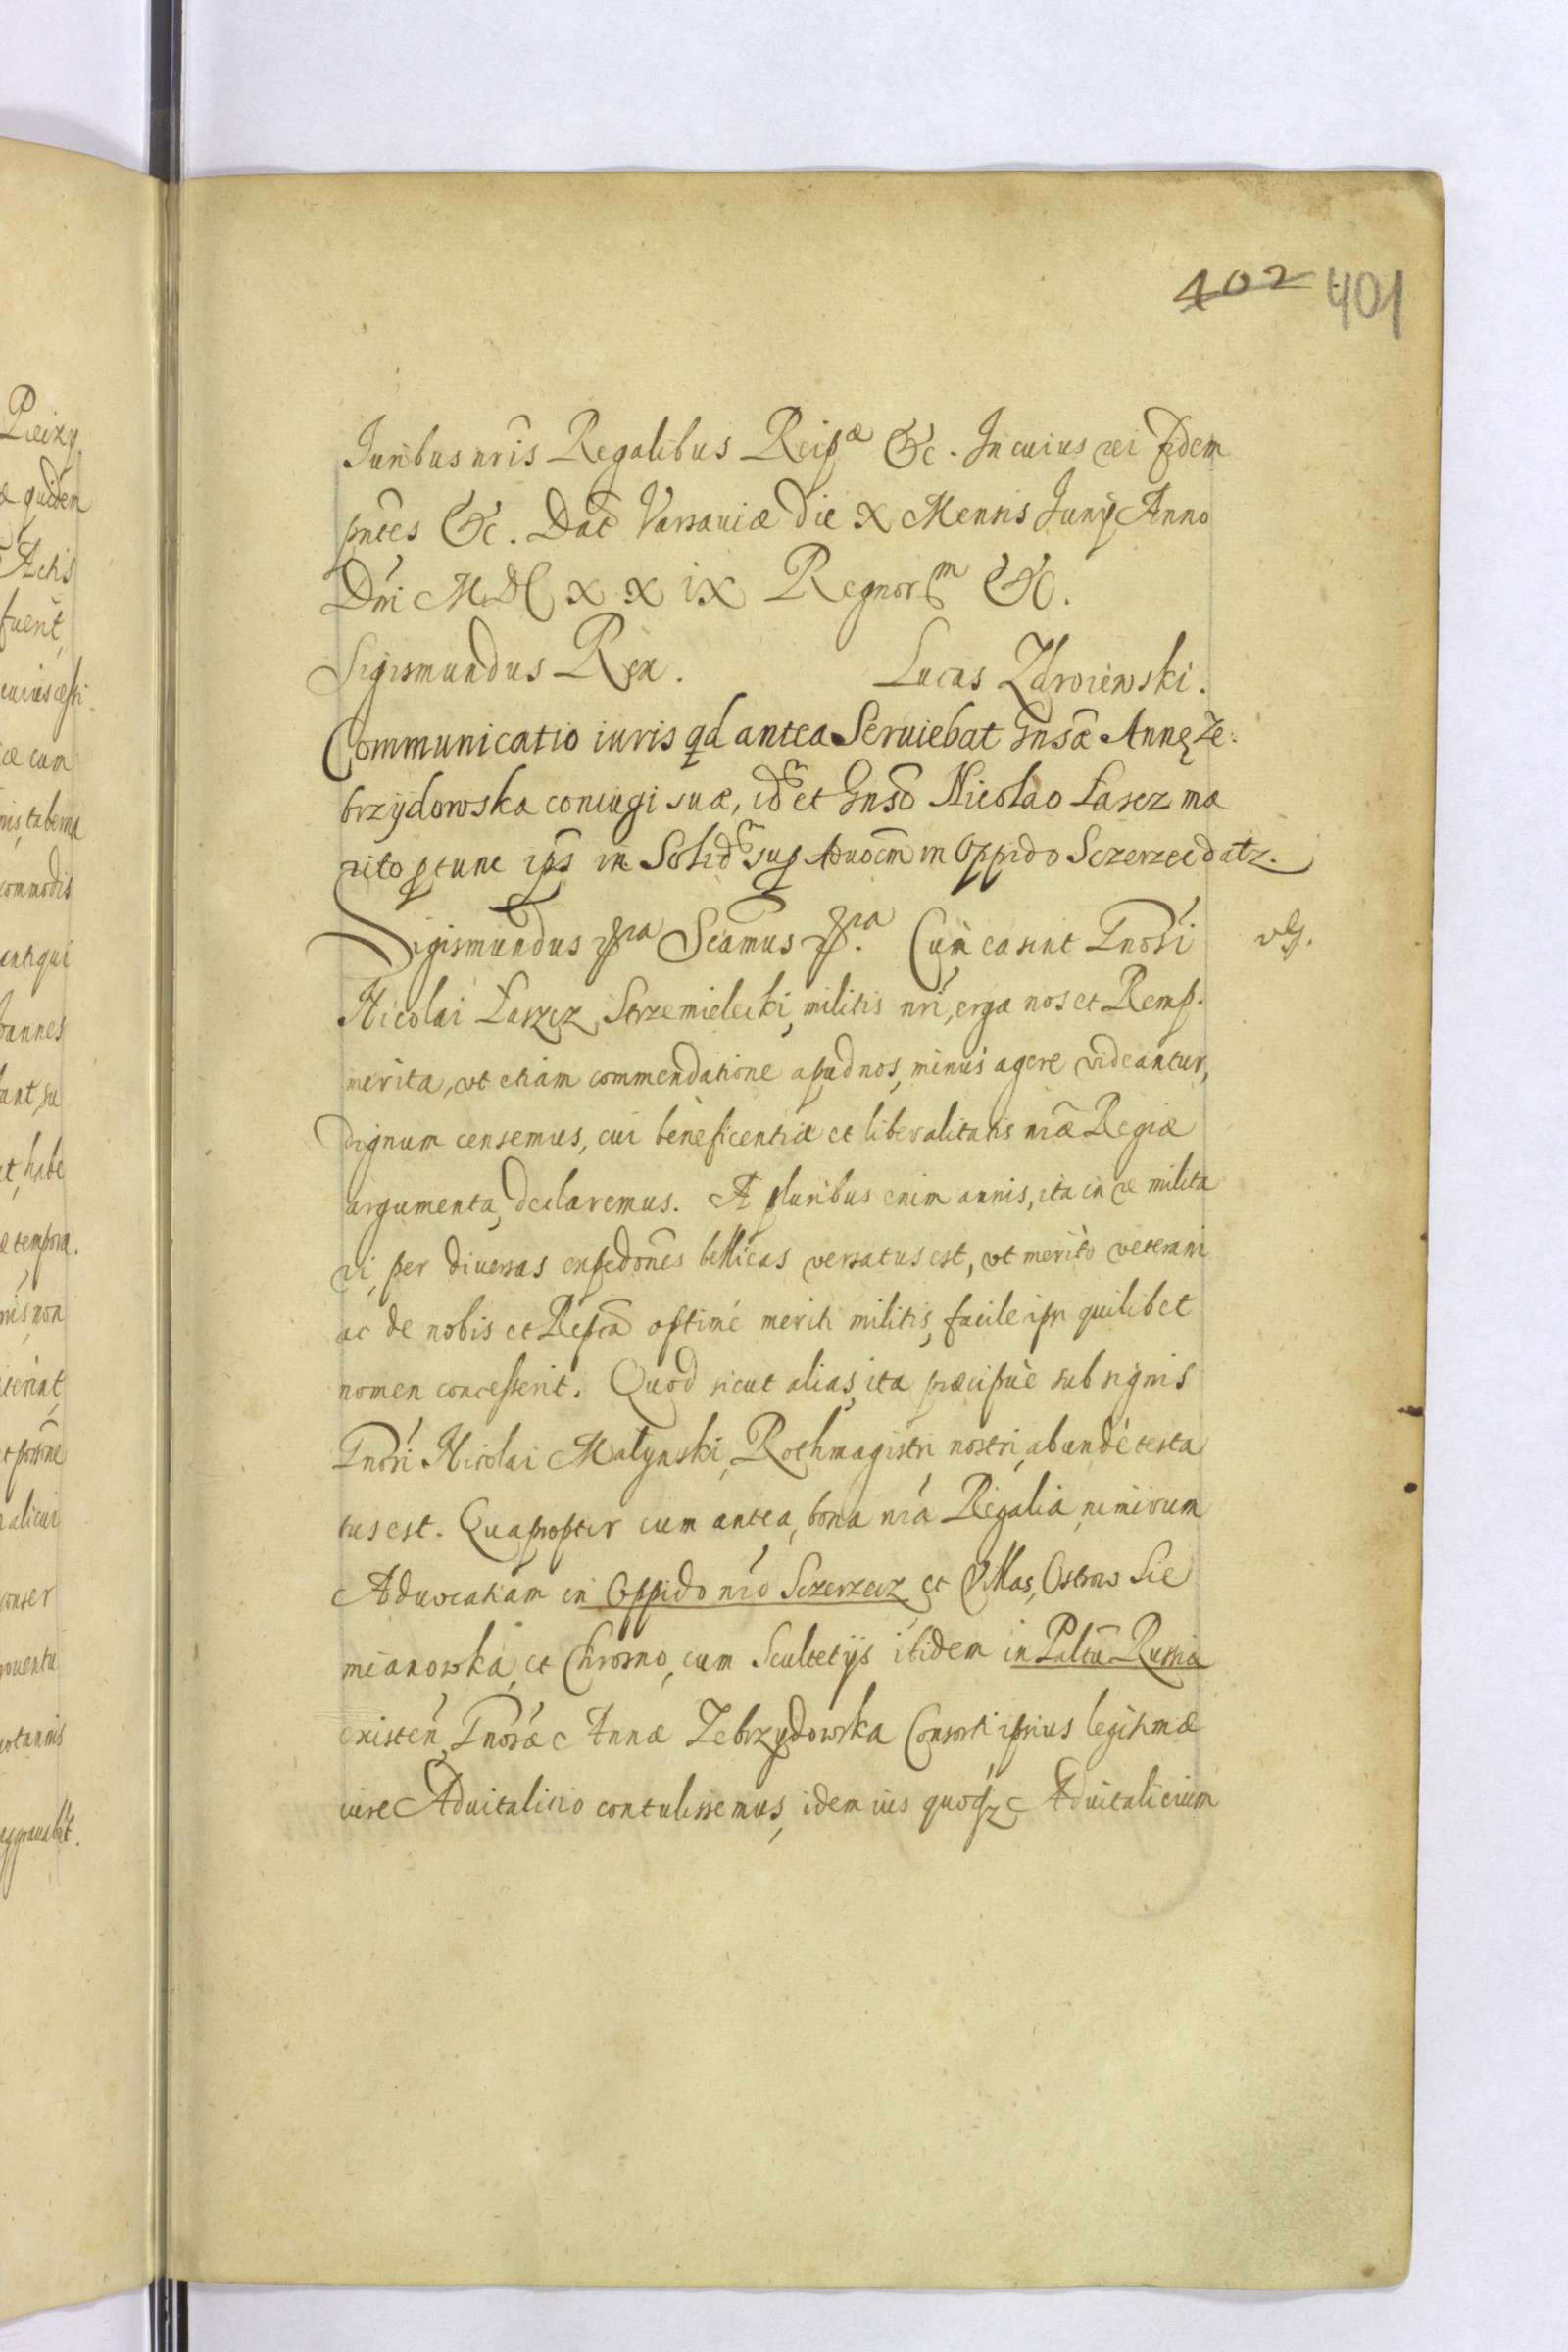 402 401
Iuribus nr̃is Regalibus Reipᵃᵉ &c. In cuius rei fidem
pñtes &c. Dat̃ Varsaviæ die X Mensis Iunij Anno
Dñi M DC X X IX Regnorᵐ &c.
Sigismundus Rex. Lucas Zdroiewski.
Communicatio iuris qd antea Seruiebat Gnsæ Annę Ze:
brzÿdowska coniugi suæ, id et Gnso Nicolao Lascz ma
rito
in Oppido Sczerzec datz.
Sigismundus &ra Scamus &ra. Cum ea sint Gnosi
Nicolai Łaszcz Strzemielecki, militis nr̃i, erga nos et Remp.
merita, vt etiam commendatione apud nos, minus agere videantur,
dignum censemus, cui beneficentiæ et liberalitatis nr̃æ Regiæ
argumenta, declaremus. A pluribus enim annis, ita in re milita
ri, per diuersas expedones bellicas versatus est, vt merito veterani
ac de nobis et Repca optimé meriti militis, facile ipsi quilibet
nomen concesserit. Quod sicut alias, ita præcipuè sub signis
Gnosi Nicolai Małynski, Rothmagistri nostri, abundé testa
tus est. Quapropter cum antea, bona nr̃a Regalia, nimirum
Aduocatiam in Oppido nr̃o Sczerzecz et Villas, Ostrow Sie
mianowka, et Chrosno, cum Scultetijs ibidem in Paltũ Russiæ
existeñ, Gnosæ Annæ Zebrzydowska Consorti ipsius legitimæ
iure Aduitalitio contulissemus, idem ius quoqz Aduitalicium